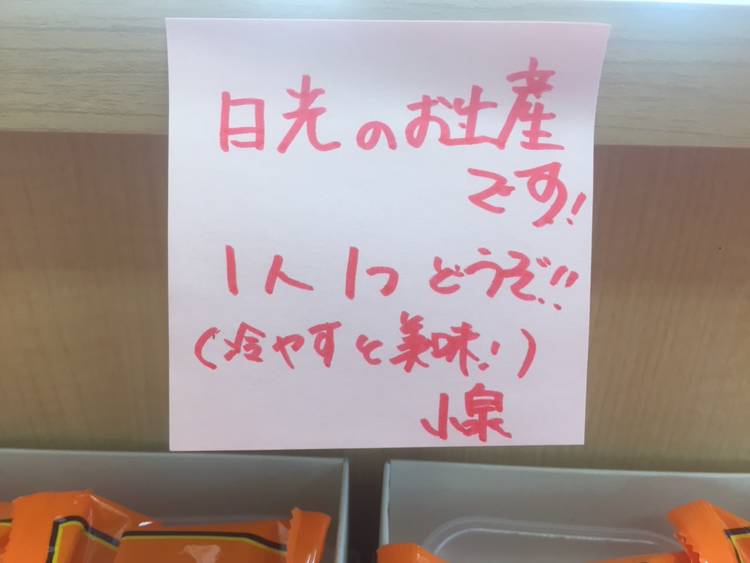 日光のお土産
です!
1人1つどうぞ!!
(冷やすと美味!)
小泉